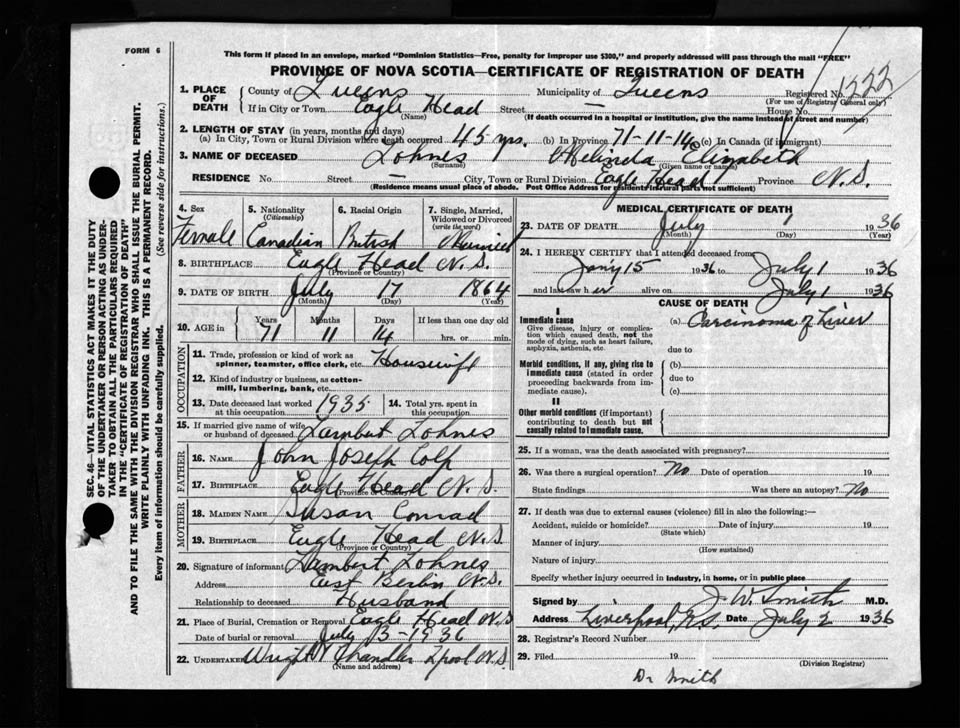 FORM 6
This form if placed in an envelope, marked "Dominion Statistics—Free, penalty for improper use $300," and properly addressed will pass through the mail "FREE"
PROVINCE OF NOVA SCOTIA—CERTIFICATE OF REGISTRATION OF DEATH
1. PLACE OF DEATH County of Queens Municipality of Queens Registered No. 1222
(For use of Registrar General only)
If in City or Town Eagle Head Street — House No.
(Name) (If death occurred in a hospital or institution, give the name instead of street and number)
2. LENGTH OF STAY (in years, months and days)
(a) In City, Town or Rural Division where death occurred 45 yrs. (b) In Province 71-11-14 (c) In Canada (if immigrant)
3. NAME OF DECEASED Lohnes Melinda Elizabeth
(Surname) (Given name or names)
RESIDENCE No. Street — City, Town or Rural Division Eagle Head Province N.S.
(Residence means usual place of abode. Post Office Address for residents in rural parts not sufficient)
4. Sex Female
5. Nationality (Citizenship) Canadian
6. Racial Origin British
7. Single, Married, Widowed or Divorced (write the word) Married
8. BIRTHPLACE Eagle Head N.S.
(Province or Country)
9. DATE OF BIRTH July 17 1864
(Month) (Day) (Year)
10. AGE in Years 71 Months 11 Days 14 If less than one day old hrs. or min.
OCCUPATION
11. Trade, profession or kind of work as spinner, teamster, office clerk, etc. Housewife
12. Kind of industry or business, as cotton-mill, lumbering, bank, etc.
13. Date deceased last worked at this occupation 1935 14. Total yrs. spent in this occupation
15. If married give name of wife or husband of deceased Lambert Lohnes
FATHER
16. NAME John Joseph Colp
17. BIRTHPLACE Eagle Head N.S.
(Province or Country)
MOTHER
18. MAIDEN NAME Susan Conrad
19. BIRTHPLACE Eagle Head N.S.
(Province or Country)
20. Signature of informant Lambert Lohnes
Address East Berlin N.S.
Relationship to deceased Husband
21. Place of Burial, Cremation or Removal Eagle Head N.S.
Date of burial or removal July 3 - 1936
22. UNDERTAKER Wright Chandler Lpool N.S.
(Name and address)
MEDICAL CERTIFICATE OF DEATH
23. DATE OF DEATH July 1 1936
(Month) (Day) (Year)
24. I HEREBY CERTIFY that I attended deceased from
Jany 15 1936 to July 1 1936
and last saw her alive on July 1 1936
CAUSE OF DEATH
I
Immediate cause (a) Carcinoma of Liver
Give disease, injury or complication which caused death, not the mode of dying, such as heart failure, asphyxia, asthenia, etc.
due to
Morbid conditions, if any, giving rise to immediate cause (stated in order proceeding backwards from immediate cause).
(b)
due to
(c)
II
Other morbid conditions (if important) contributing to death but not causally related to immediate cause.
25. If a woman, was the death associated with pregnancy?
26. Was there a surgical operation? No Date of operation 19
State findings Was there an autopsy? No
27. If death was due to external causes (violence) fill in also the following:—
Accident, suicide or homicide? Date of injury 19
(State which)
Manner of injury
(How sustained)
Nature of injury
Specify whether injury occurred in industry, in home, or in public place
Signed by J. W. Smith M.D.
Address Liverpool, N.S. Date July 2 1936
28. Registrar's Record Number
29. Filed 19
(Division Registrar)
Dr Smith
SEC. 46—VITAL STATISTICS ACT MAKES IT THE DUTY
OF THE UNDERTAKER OR PERSON ACTING AS UNDER-
TAKER TO OBTAIN ALL THE PARTICULARS REQUIRED
IN THE "CERTIFICATE OF REGISTRATION OF DEATH"
AND TO FILE THE SAME WITH THE DIVISION REGISTRAR WHO SHALL ISSUE THE BURIAL PERMIT.
WRITE PLAINLY WITH UNFADING INK. THIS IS A PERMANENT RECORD.
Every item of information should be carefully supplied. (See reverse side for instructions.)